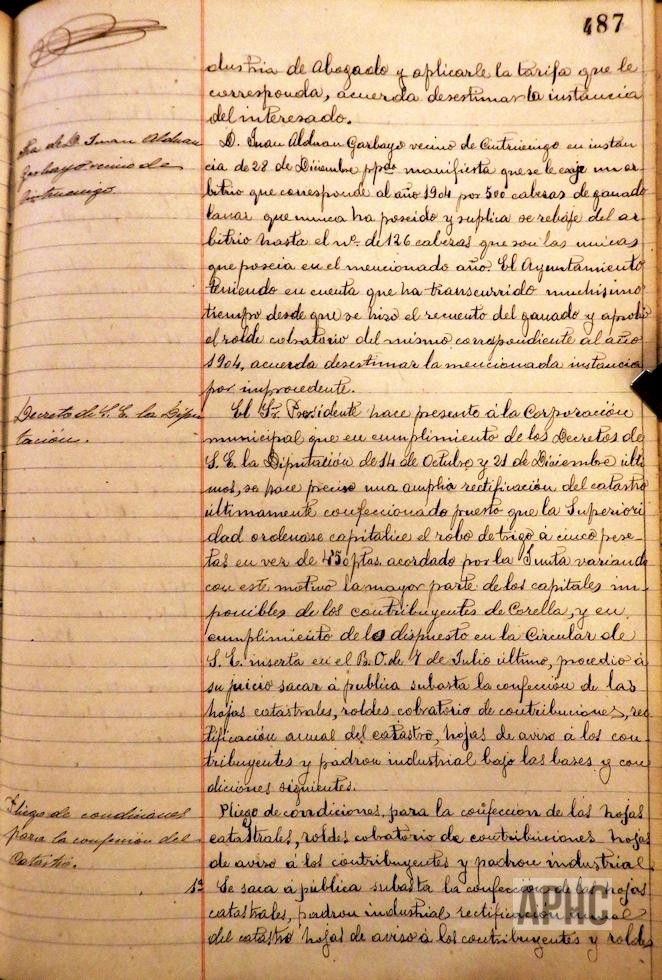 487
dustria de Abogado y aplicarle la tarifa que le
corresponda, acuerda desestimar la instancia
del interesado.
Ina de D. Juan Alduan
Garbayo vecino de
Cintruenigo
D. Juan Alduan Garbayo vecino de Cintruenigo en instan
cia de 28 de Diciembre ppdo manifiesta que se le exije un ar
bitrio que corresponde al año 1904 por 500 cabezas de ganado
lanar que nunca ha poseido y suplica se rebaje del ar
bitrio hasta el nº. de 126 cabezas que son las unicas
que poseia en el mencionado año. El Ayuntamiento
teniendo en cuenta que ha transcurrido muchisimo
tiempo desde que se hizo el recuento del ganado y aprobó
el rolde cobratorio del mismo correspondiente al año
1904, acuerda desestimar la mencionada instancia
por improcedente.
Decreto de S. E. la Dipu
tación.
El Sr. Presidente hace presente á la Corporación
municipal que en cumplimiento de los Decretos de
S. E. la Diputación de 14 de Octubre y 21 de Diciembre ulti
mos, se hace preciso una amplia rectificación del catastro
ultimamente confeccionado puesto que la Superiori
dad ordenase capitalice el robo de trigo á cinco pese-
tas en vez de ptas. acordado por la Junta variando
con este motivo la mayor parte de los capitales im
ponibles de los contribuyentes de Corella, y en
cumplimiento de lo dispuesto en la Circular de
S. E. inserta en el B. O. de 7 de Julio ultimo, procedió á
su juicio sacar á publica subasta la confección de las
hojas catastrales, roldes cobratorio de contribuciones, rec
tificación anual del catastro, hojas de aviso á los con-
tribuyentes y padron industrial bajo las bases y con
diciones siguientes.
Pliego de condiciones
para la confeccion del
Catastro.
Pliego de condiciones, para la confeccion de las hojas
catastrales, roldes cobratorio de contribuciones hojas
de aviso á los contribuyentes y padron industrial.
1ª Se saca á publica subasta la confección de las hojas
catastrales, padron industrial rectificacion anual
del catastro hojas de aviso á los contribuyentes y roldes
APHC